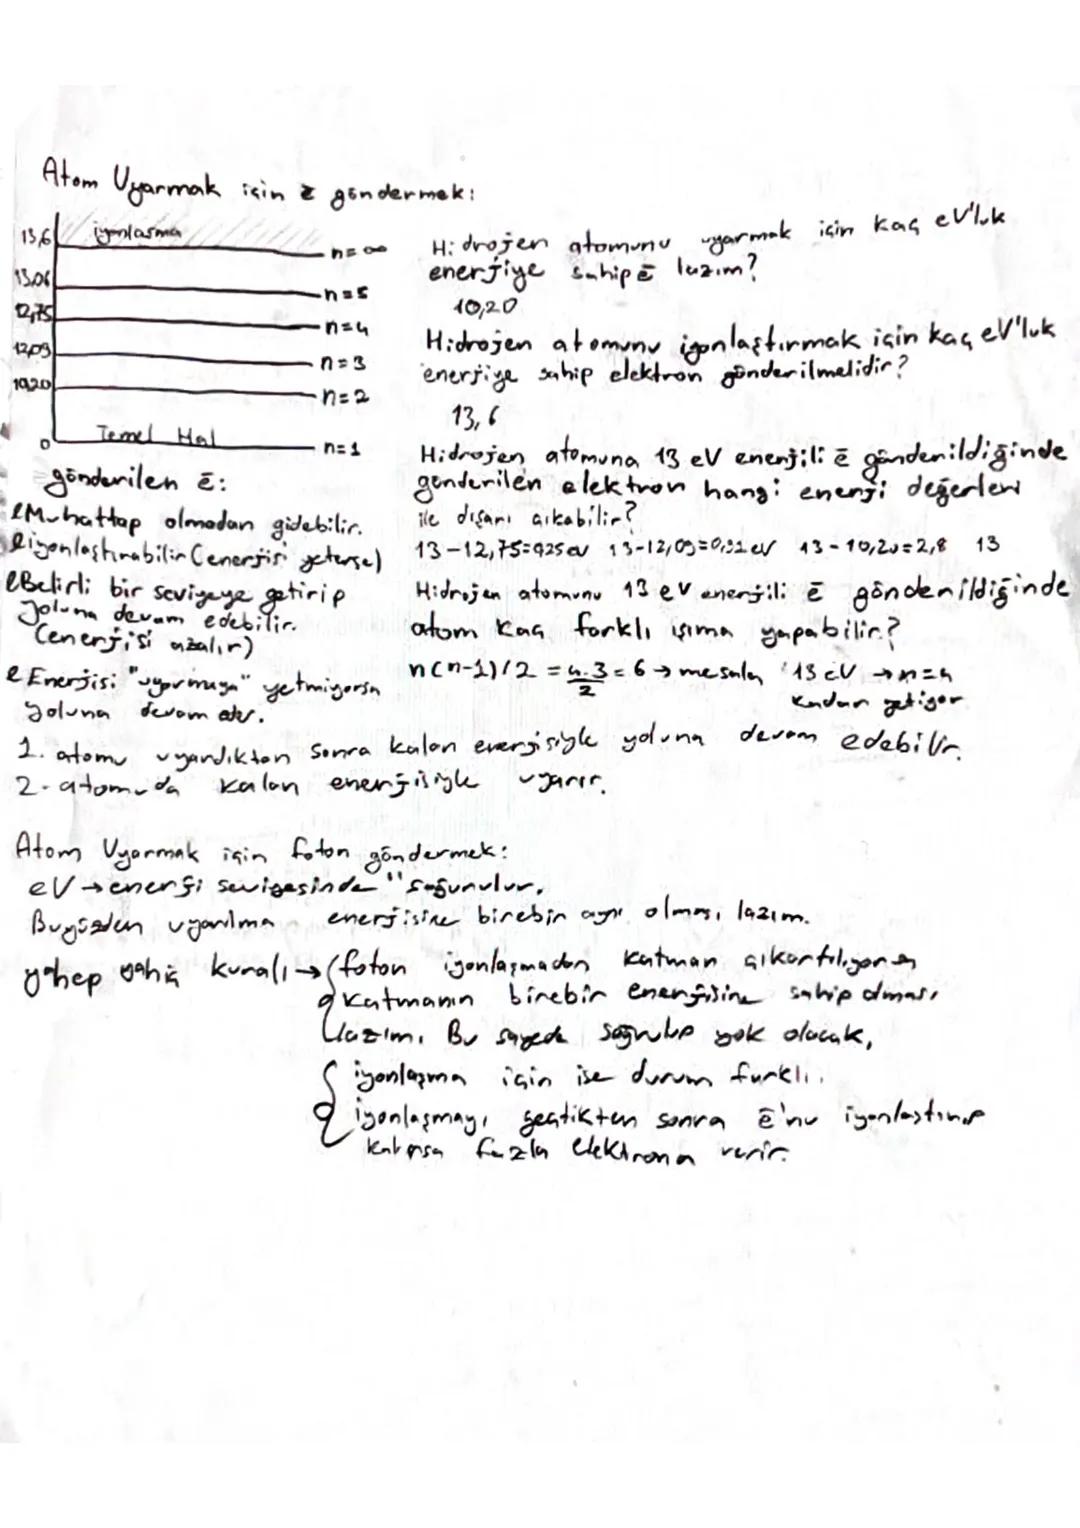 Atom Uyarmak için ē göndermek:
13,6 iyonlaşma n=∞
13,06 n=5
12,75 n=4
12,09 n=3
10,20 n=2
0 Temel Hal n=1
Hidrojen atomunu uyarmak için kaç eV'luk
enerjiye sahip ē lazım?
10,20
Hidrojen atomunu iyonlaştırmak için kaç eV'luk
enerjiye sahip elektron gönderilmelidir?
13,6
Hidrojen atomuna 13 eV enerjili ē gönderildiğinde
gönderilen elektron hangi enerji değerleri
ile dışarı çıkabilir?
13-12,75=0,25 eV 13-12,09=0,91 eV 13-10,20=2,8 13
Hidrojen atomunu 13 eV enerjili ē gönderildiğinde
atom kaç farklı ışıma yapabilir?
n(n-1)/2 = 4.3/2 = 6 → mesela 13 eV → n=4
kadar yetiyor
gönderilen ē:
Muhattap olmadan gidebilir.
iyonlaştırabilir (enerjisi yeterse)
Belirli bir seviyeye getirip
yoluna devam edebilir.
(enerjisi azalır)
Enerjisi "uyarmaya" yetmiyorsa
yoluna devam eder.
1. atomu uyardıktan sonra kalan enerjisiyle yoluna devam edebilir.
2. atomu da kalan enerjisiyle uyarır.
Atom Uyarmak için foton göndermek:
eV → enerji seviyesinde "soğurulur.
Bu yüzden uyarılma enerjisine birebir aynı olması lazım.
ya hep ya hiç kuralı → foton iyonlaşmadan katman çıkartılıyorsa
katmanın birebir enerjisine sahip olması
lazım. Bu sayede soğrulup yok olacak,
iyonlaşma için ise durum farklı.
iyonlaşmayı geçtikten sonra ē'nu iyonlaştırıp
kalırsa fazla elektrona verir.